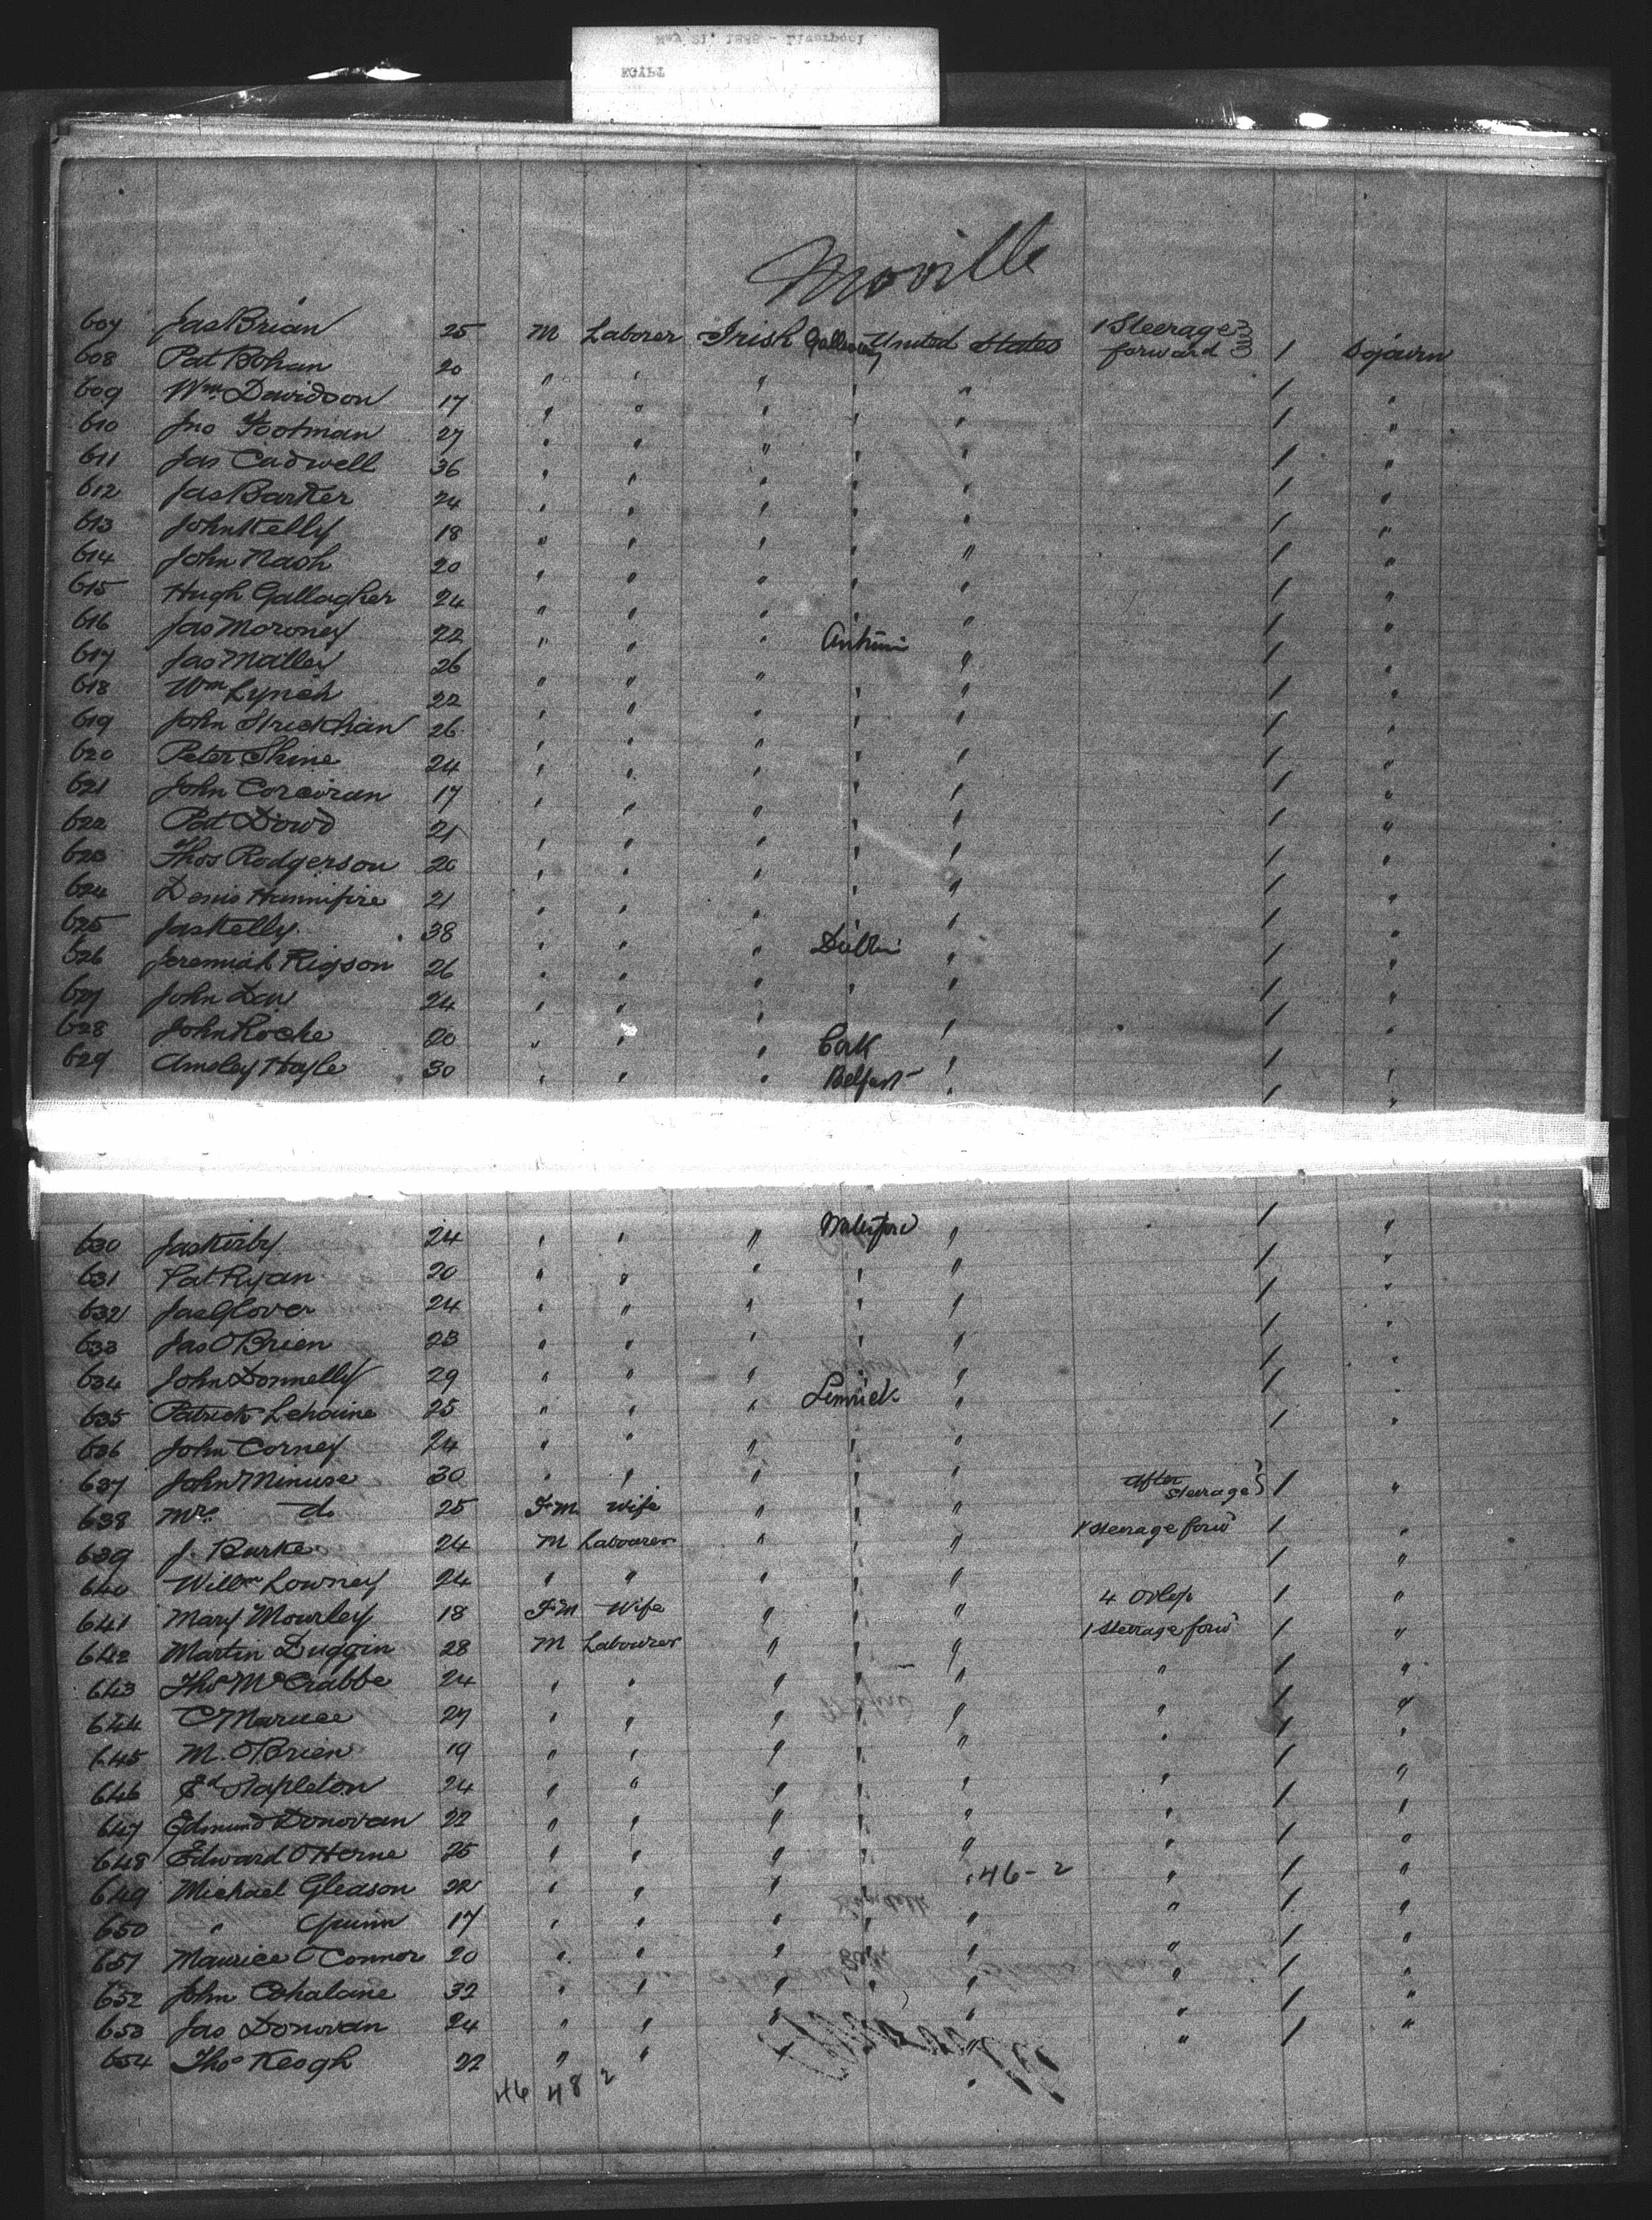 Moville
607 Jas Brian 25 M Laborer Irish Gallway United States 1 Steerage forward / Sojourn
608 Pat Bohan 20 " " " " " / "
609 Wm Davidson 17 " " " " " / "
610 Jno Footman 27 " " " " " / "
611 Jas Cadwell 36 " " " " " / "
612 Jas Barker 24 " " " " " / "
613 John Kelly 18 " " " " " / "
614 John Nash 20 " " " " " / "
615 Hugh Gallagher 24 " " " " " / "
616 Jas Moroney 22 " " " Antrim " / "
617 Jas Malley 26 " " " " " / "
618 Wm Lynch 22 " " " " " / "
619 John 26 " " " " " / "
620 Peter Shine 24 " " " " " / "
621 John Corcoran 17 " " " " " / "
622 Pat Dowd 21 " " " " " / "
623 Thos Rodgerson 20 " " " " " / "
624 Denis Hannifire 21 " " " " " / "
625 Jas Kelly 38 " " " Dublin " / "
626 Jeremiah Rigson 26 " " " " " / "
627 John 24 " " " " " / "
628 John Roche 20 " " " Cork " / "
629 Hoyle 30 " " " Belfast " / "
630 Jas Kirby 24 " " " Waterford " / "
631 Pat Ryan 20 " " " " " / "
632 Jas Glover 24 " " " " " / "
633 Jas O'Brien 23 " " " " " / "
634 John Donnelly 29 " " " " " / "
635 Patrick Lehaine 25 " " " Limrick " / "
636 John Corney 24 " " " " " / "
637 John Minuse 30 " " " " " After Steerage / "
638 Mrs do 25 Fm Wife " " "
639 J. Burke 24 M Labourer " " " 1 Steerage forwd / "
640 Willm Lowney 24 " " " " " / "
641 Mary Mourley 18 Fm Wife " " " 4 Orlop / "
642 Martin Duggin 28 M Labourer " " " 1 Steerage forwd / "
643 Thos McCrabbe 24 " " " " " " / "
644 C Maruce 27 " " " " " " / "
645 M. O'Brien 19 " " " " " " / "
646 Ed Stapleton 24 " " " " " " / "
647 Edmund Donovan 22 " " " " " " / "
648 Edward O'Herne 25 " " " " " " / "
649 Michael Gleason 22 " " " " " 46-2 " / "
650 " Quinn 17 " " " " " " / "
651 Maurice O'Connor 20 " " " " " " / "
652 John Cohalane 32 " " " " " " / "
653 Jas Donovan 24 " " " " " " / "
654 Thos Keogh 22 " " " " " " / "
46 48 2